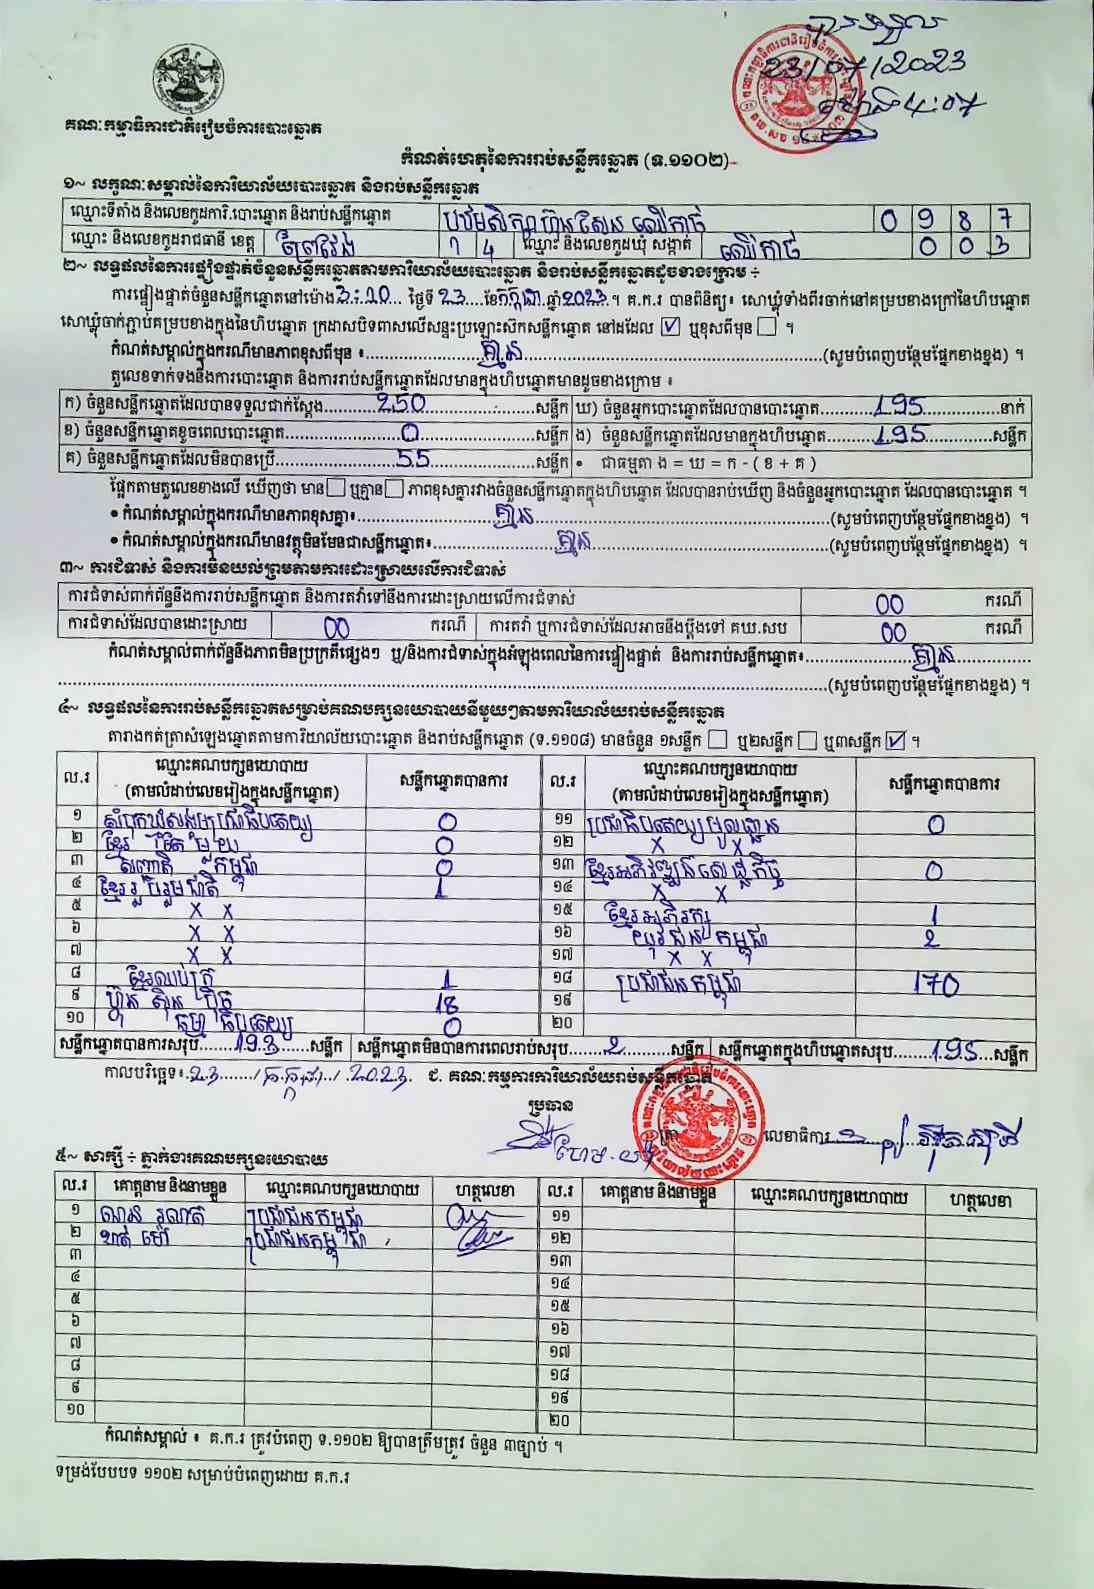 បានទទួល
23/07/2023
ម៉ោង 4:07
គណៈកម្មាធិការជាតិរៀបចំការបោះឆ្នោត
កំណត់ហេតុនៃការរាប់សន្លឹកឆ្នោត (ទ.១១០២)
១~ លក្ខណៈសម្គាល់នៃការិយាល័យបោះឆ្នោត និងរាប់សន្លឹកឆ្នោត
ឈ្មោះទីតាំង និងលេខកូដការិ.បោះឆ្នោត និងរាប់សន្លឹកឆ្នោត បឋមសិក្សា ហ៊ុន សែន ឈើកាច់ 0 9 8 7
ឈ្មោះ និងលេខកូដរាជធានី ខេត្ត ព្រៃវែង 1 4 ឈ្មោះ និងលេខកូដឃុំ សង្កាត់ ឈើកាច់ 0 0 3
២~ លទ្ធផលនៃការផ្ទៀងផ្ទាត់ចំនួនសន្លឹកឆ្នោតតាមការិយាល័យបោះឆ្នោត និងរាប់សន្លឹកឆ្នោតដូចខាងក្រោម ÷
ការផ្ទៀងផ្ទាត់ចំនួនសន្លឹកឆ្នោតនៅម៉ោង 3:20 ថ្ងៃទី 23 ខែ កក្កដា ឆ្នាំ 2023 ។ គ.ក.រ បានពិនិត្យ៖ សោឃ្លុំទាំងពីរចាក់នៅគម្របខាងក្រៅនៃហិបឆ្នោត
សោឃ្លុំចាក់ភ្ជាប់គម្របខាងក្នុងនៃហិបឆ្នោត ក្រដាសបិទពាសលើសន្ទះប្រឡោះសិកសន្លឹកឆ្នោត នៅដដែល ☑ ឬខុសពីមុន ☐ ។
កំណត់សម្គាល់ក្នុងករណីមានភាពខុសពីមុន ៖ គ្មាន (សូមបំពេញបន្ថែមផ្នែកខាងខ្នង) ។
តួលេខទាក់ទងនឹងការបោះឆ្នោត និងការរាប់សន្លឹកឆ្នោតដែលមានក្នុងហិបឆ្នោតមានដូចខាងក្រោម ៖
ក) ចំនួនសន្លឹកឆ្នោតដែលបានទទួលជាក់ស្ដែង 250 សន្លឹក ឃ) ចំនួនអ្នកបោះឆ្នោតដែលបានបោះឆ្នោត 195 នាក់
ខ) ចំនួនសន្លឹកឆ្នោតខូចពេលបោះឆ្នោត 0 សន្លឹក ង) ចំនួនសន្លឹកឆ្នោតដែលមានក្នុងហិបឆ្នោត 195 សន្លឹក
គ) ចំនួនសន្លឹកឆ្នោតដែលមិនបានប្រើ 55 សន្លឹក • ជាធម្មតា ង = ឃ = ក - ( ខ + គ )
ផ្អែកតាមតួលេខខាងលើ ឃើញថា មាន ☐ ឬគ្មាន ☐ ភាពខុសគ្នារវាងចំនួនសន្លឹកឆ្នោតក្នុងហិបឆ្នោត ដែលបានរាប់ឃើញ និងចំនួនអ្នកបោះឆ្នោត ដែលបានបោះឆ្នោត ។
• កំណត់សម្គាល់ក្នុងករណីមានភាពខុសគ្នា៖ គ្មាន (សូមបំពេញបន្ថែមផ្នែកខាងខ្នង) ។
• កំណត់សម្គាល់ក្នុងករណីមានវត្ថុមិនមែនជាសន្លឹកឆ្នោត៖ គ្មាន (សូមបំពេញបន្ថែមផ្នែកខាងខ្នង) ។
៣~ ការជំទាស់ និងការមិនយល់ព្រមតាមការដោះស្រាយលើការជំទាស់
ការជំទាស់ពាក់ព័ន្ធនឹងការរាប់សន្លឹកឆ្នោត និងការតវ៉ាទៅនឹងការដោះស្រាយលើការជំទាស់ 00 ករណី
ការជំទាស់ដែលបានដោះស្រាយ 00 ករណី ការតវ៉ា ឬការជំទាស់ដែលអាចនឹងប្ដឹងទៅ គឃ.សប 00 ករណី
កំណត់សម្គាល់ពាក់ព័ន្ធនឹងភាពមិនប្រក្រតីផ្សេងៗ ឬ/និងការជំទាស់ក្នុងអំឡុងពេលនៃការផ្ទៀងផ្ទាត់ និងការរាប់សន្លឹកឆ្នោត៖ គ្មាន
(សូមបំពេញបន្ថែមផ្នែកខាងខ្នង) ។
៤~ លទ្ធផលនៃការរាប់សន្លឹកឆ្នោតសម្រាប់គណបក្សនយោបាយនីមួយៗតាមការិយាល័យរាប់សន្លឹកឆ្នោត
តារាងកត់ត្រាសំឡេងឆ្នោតតាមការិយាល័យបោះឆ្នោត និងរាប់សន្លឹកឆ្នោត (ទ.១១០៨) មានចំនួន ១សន្លឹក ☐ ឬ២សន្លឹក ☐ ឬ៣សន្លឹក ☑ ។
ល.រ ឈ្មោះគណបក្សនយោបាយ (តាមលំដាប់លេខរៀងក្នុងសន្លឹកឆ្នោត) សន្លឹកឆ្នោតបានការ ល.រ ឈ្មោះគណបក្សនយោបាយ (តាមលំដាប់លេខរៀងក្នុងសន្លឹកឆ្នោត) សន្លឹកឆ្នោតបានការ
១ សំបុកឃ្មុំសង្គមប្រជាធិបតេយ្យ 0 ១១ ប្រជាធិបតេយ្យមូលដ្ឋាន 0
២ ខ្មែរតែមួយ 0 ១២ x x
៣ សញ្ជាតិកម្ពុជា 0 ១៣ ខ្មែរអភិវឌ្ឍន៍សេដ្ឋកិច្ច 0
៤ ខ្មែររួបរួមជាតិ 1 ១៤ x x
៥ x x ១៥ ខ្មែរអភិរក្ស 1
៦ x x ១៦ យុវជនកម្ពុជា 2
៧ x x ១៧ x x
៨ ខ្មែរឈប់ក្រ 1 ១៨ ប្រជាជនកម្ពុជា 170
៩ ហ៊្វុនស៊ិនប៉ិច 18 ១៩
១០ ធម្មាធិបតេយ្យ 0 ២០
សន្លឹកឆ្នោតបានការសរុប 193 សន្លឹក សន្លឹកឆ្នោតមិនបានការពេលរាប់សរុប 2 សន្លឹក សន្លឹកឆ្នោតក្នុងហិបឆ្នោតសរុប 195 សន្លឹក
កាលបរិច្ឆេទ៖ 23 / កក្កដា / 2023 ជ. គណៈកម្មការការិយាល័យរាប់សន្លឹកឆ្នោត
ប្រធាន
ត្រា លេខាធិការ
៥~ សាក្សី ÷ ភ្នាក់ងារគណបក្សនយោបាយ
ល.រ គោត្តនាម និងនាមខ្លួន ឈ្មោះគណបក្សនយោបាយ ហត្ថលេខា ល.រ គោត្តនាម និងនាមខ្លួន ឈ្មោះគណបក្សនយោបាយ ហត្ថលេខា
១ ប្រជាជនកម្ពុជា ១១
២ ប្រជាជនកម្ពុជា ១២
៣ ១៣
៤ ១៤
៥ ១៥
៦ ១៦
៧ ១៧
៨ ១៨
៩ ១៩
១០ ២០
កំណត់សម្គាល់ ៖ គ.ក.រ ត្រូវបំពេញ ទ.១១០២ ឱ្យបានត្រឹមត្រូវ ចំនួន ៣ច្បាប់ ។
ទម្រង់បែបបទ ១១០២ សម្រាប់បំពេញដោយ គ.ក.រ